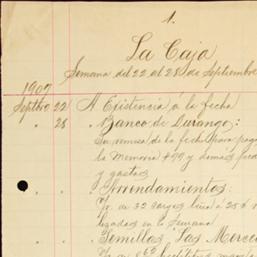 1.
La Caja
Semana del 22 al 28 de Septiembre
1909
Septbre 22 A Existencia á la fecha
" 28 " Banco de Durango:
Su remesa de la fecha para pag
la Memoria #99 y demas
y gastos
" " Arrendamientos:
32 cargas leña á 25¢
lizados en la semana
" " Semillas "Las Merce